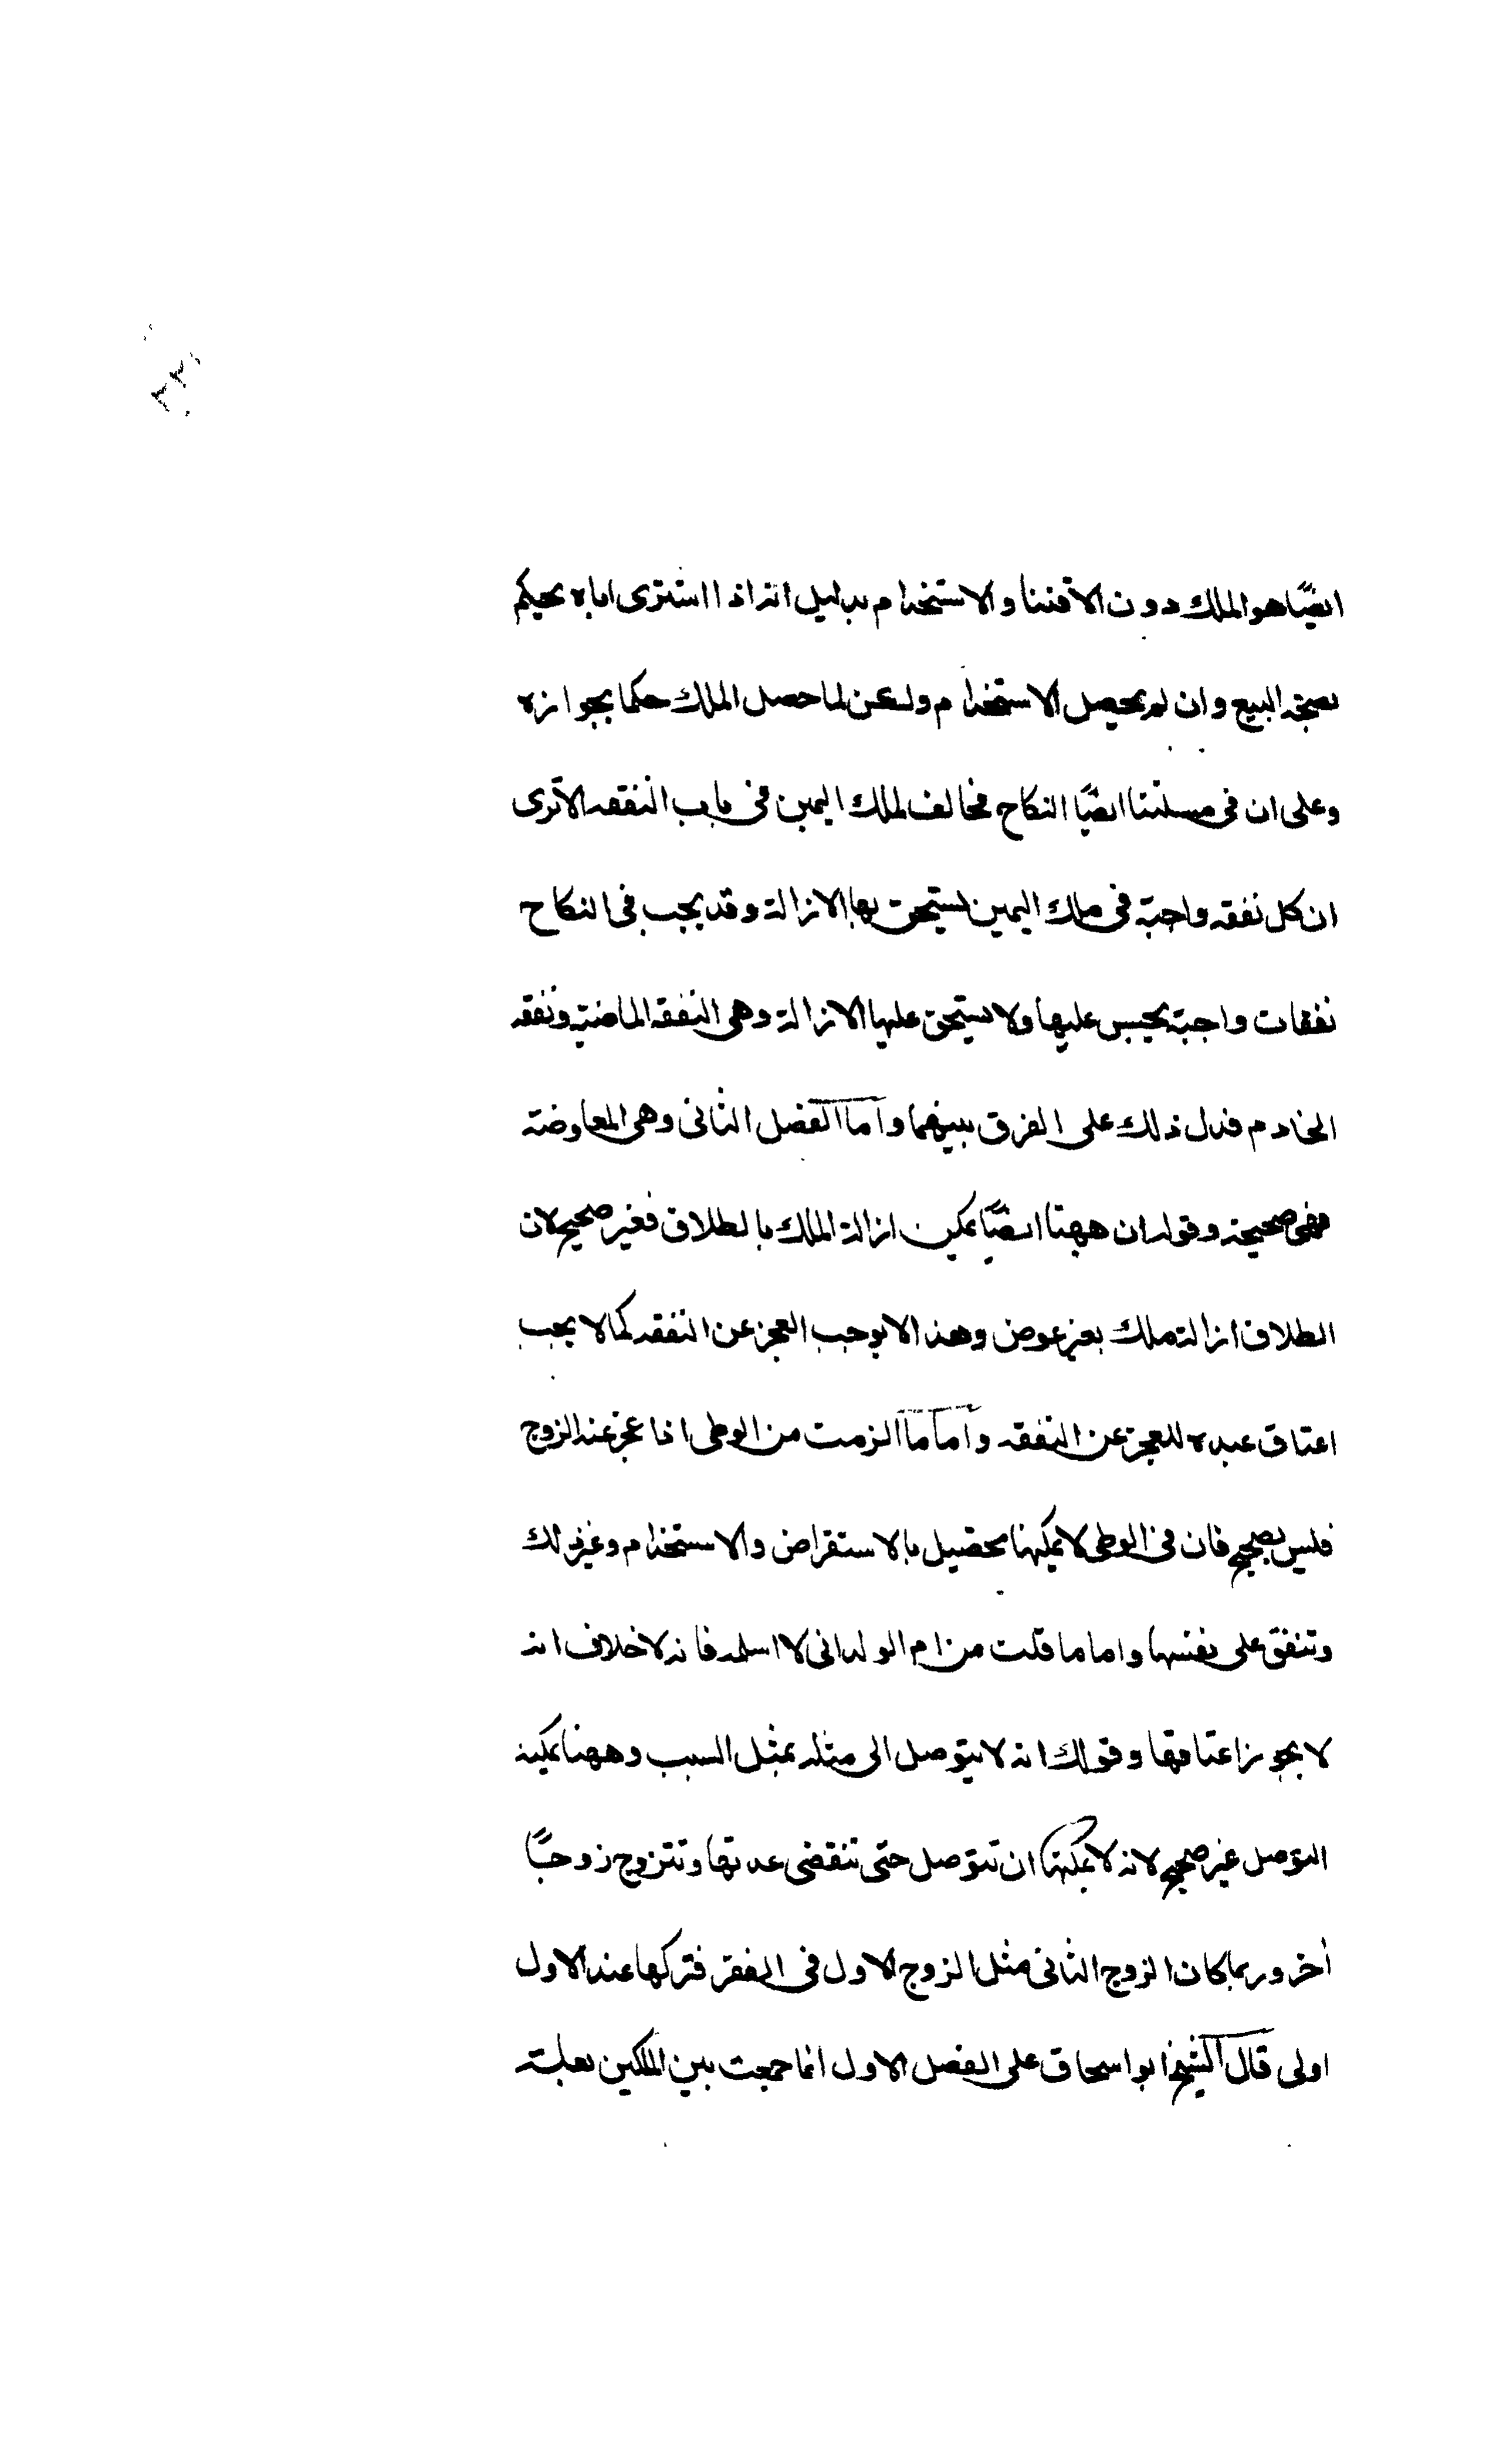 ايضًا هو الملك دون الاقتنا والاستخدام بدليل انه اذا اشترى اباه يحكم
بصحة البيع وان لم يحصل الاستخدام ولكن لما حصل الملك حكما بجوازه
وعلى ان في مسئلتنا ايضًا النكاح مخالف لملك اليمين في باب النفقه الا ترى
ان كل نفقه واجبة في ملك اليمين يستحق بها الازالة وقد يجب في النكاح
نفقات واجبة يحبس عليها ولا يستحق عليها الازالة وهي النفقه الماضية ونفقه
الخادم فدل ذلك على الفرق بينهما واما الفصل الثاني وهي المعاوضة
فهي صحيحة وقوله ان ههنا ايضًا يمكن ازالة الملك بالطلاق فغير صحيح لان
الطلاق ازالة ملك بغير عوض وهذا لا يوجب العجز عن النفقه كما لا يجب
اعتاق عبده للعجز عن النفقه واما ما الزمت من الوطى اذا عجز عنه الزوج
فليس بصحيح فان في الوطى لا يمكنها تحصيل بالاستقراض والاستخدام وغير ذلك
وتنفق على نفسها واما ما قلت من ام الولد اني لا اسلمه فانه لا خلاف انه
لا يجوز اعتاقها وقولك انه لا يتوصل الى مثله بمثل السبب وههنا يمكنه
التوصل غير صحيح لانه لا يمكنها ان تتوصل حتى تنقضي عدتها وتتزوج زوجًا
أخر وربما كان الزوج الثاني مثل الزوج الاول في الفقر فتركها عند الاول
اولى قال الشيخ ابو اسحاق على الفصل الاول انما جمعت بين الملكين بعلة